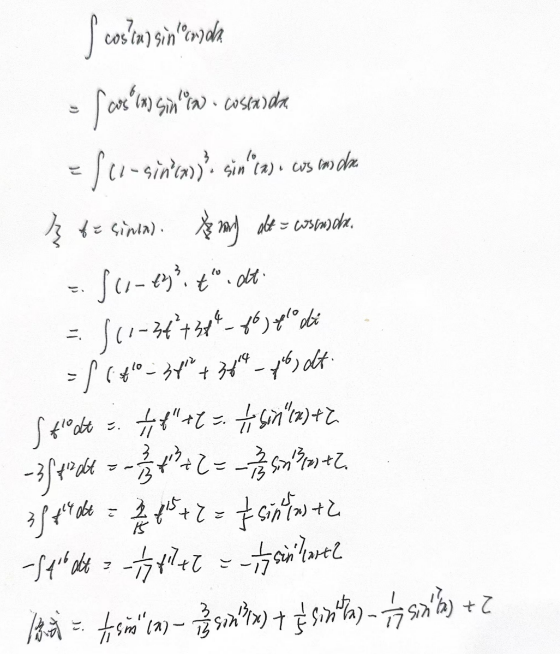 ∫ cos⁷(x) sin¹⁰(x) dx
= ∫ cos⁶(x) sin¹⁰(x) · cos(x) dx
= ∫ (1 - sin²(x))³ · sin¹⁰(x) · cos(x) dx
令 t = sin(x). 则 dt = cos(x) dx.
= ∫ (1 - t²)³ · t¹⁰ · dt.
= ∫ (1 - 3t² + 3t⁴ - t⁶) t¹⁰ dt
= ∫ (t¹⁰ - 3t¹² + 3t¹⁴ - t¹⁶) dt.
∫ t¹⁰ dt = 1/11 t¹¹ + C = 1/11 sin¹¹(x) + C
-3∫ t¹² dt = -3/13 t¹³ + C = -3/13 sin¹³(x) + C.
3∫ t¹⁴ dt = 3/15 t¹⁵ + C = 1/5 sin¹⁵(x) + C
-∫ t¹⁶ dt = -1/17 t¹⁷ + C = -1/17 sin¹⁷(x) + C
原式 = 1/11 sin¹¹(x) - 3/13 sin¹³(x) + 1/5 sin¹⁵(x) - 1/17 sin¹⁷(x) + C